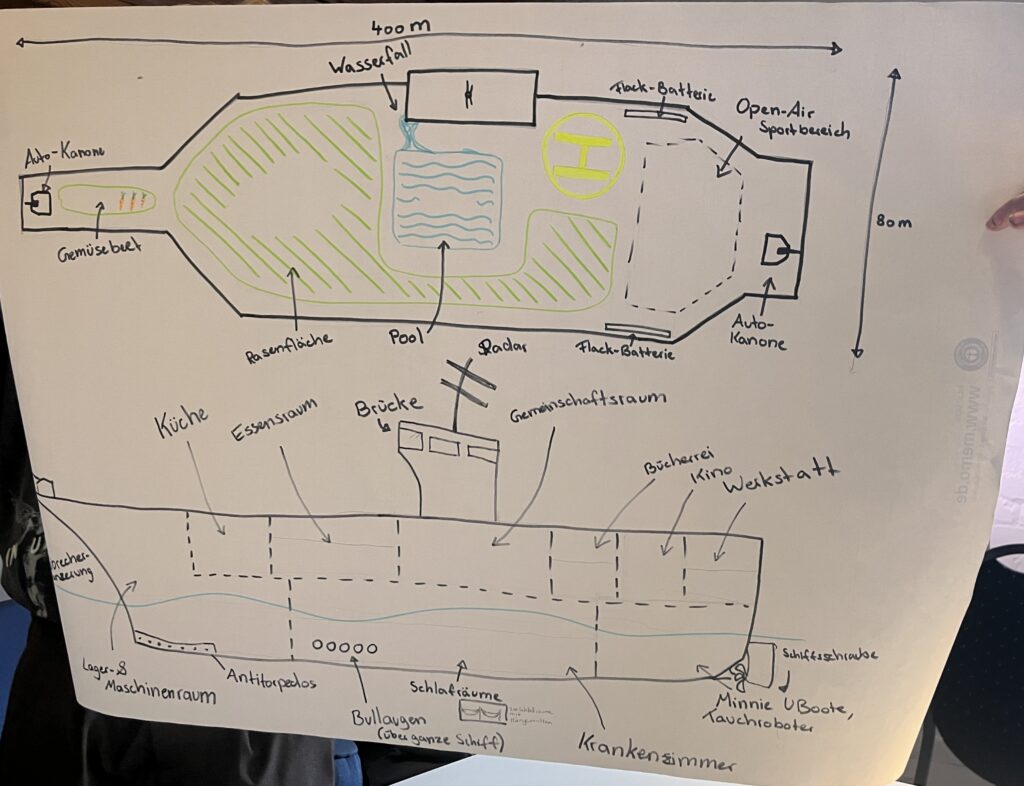 400 m
Wasserfall
Flack-Batterie
Open-Air
Sportbereich
Auto-Kanone
H
80 m
Gemüsebeet
Rasenfläche
Pool
Radar
Flack-Batterie
Auto-
Kanone
Küche
Essensraum
Brücke
Gemeinschaftsraum
Bücherrei
Kino
Werkstatt
www.memo.de
Lager- &
Maschinenraum
Antitorpedos
Bullaugen
(über ganze Schiff)
Schlafräume
Krankenzimmer
Schiffsschraube
Minnie UBoote,
Tauchroboter